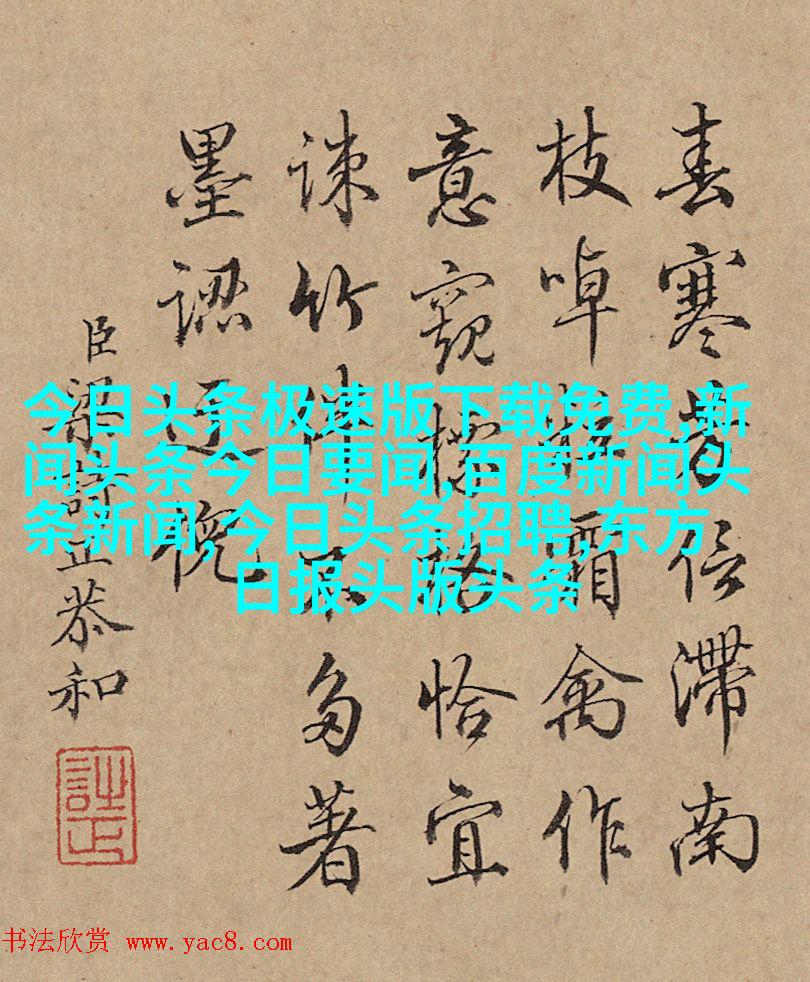 春寒信滞南
枝啅霜禽作
意窺恰宜
竹伴不多著
墨認
臣梁詩正恭和
詩正
今日头条极速版下载免费,新
闻头条今日要闻,百度新闻头
条新闻,今日头条招聘,东方
日报头版头条
书法欣赏 www.yac8.com